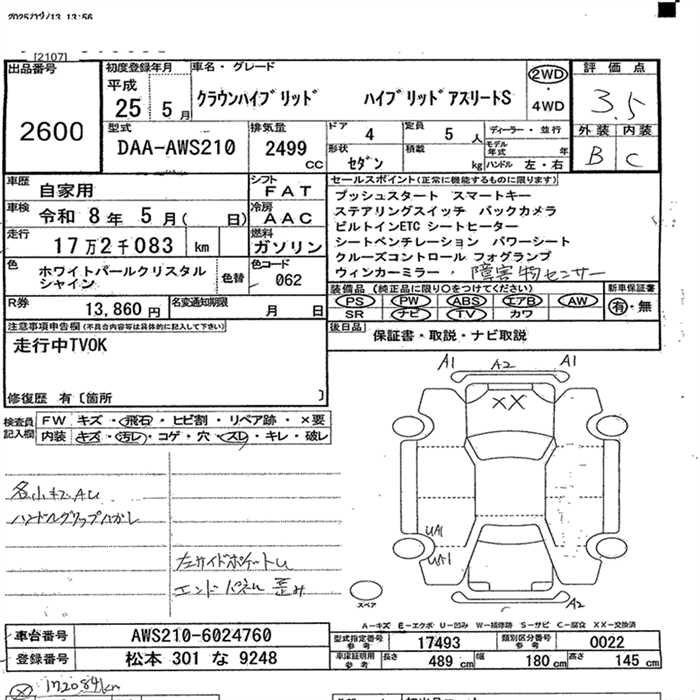 2025/12/13 13:56
[2107]
出品番号
2600
初度登録年月
平成
25年5月
車名・グレード
クラウンハイブリッド ハイブリッドアスリートS
2WD
・
4WD
評価点
3.5
外装 内装
B C
型式
DAA-AWS210
排気量
2499
CC
ドア 4
定員 5人
ディーラー・並行
形状 セダン
積載 kg
モデル年式 年
ハンドル 左・右
車歴 自家用
シフト FAT
車検 令和8年5月(日)
冷房 AAC
走行 17万2千083 km
燃料 ガソリン
色 ホワイトパールクリスタル
シャイン
色替
色コード 062
R券 13,860円
名変通知期限 月 日
セールスポイント(正常に機能するものに限ります)
プッシュスタート スマートキー
ステアリングスイッチ バックカメラ
ビルトインETC シートヒーター
シートベンチレーション パワーシート
クルーズコントロール フォグランプ
ウィンカーミラー・障害物センサー
装備品(純正品に限り○をつけてください)
PS PW ABS エアB AW
SR ナビ TV カワ
新車保証書
有・無
後日品
保証書・取説・ナビ取説
注意事項申告欄(不具合内容等は具体的に記入して下さい)
走行中TVOK
修復歴 有〔箇所 〕
検査員
記入欄
FW キズ・飛石・ヒビ割・リペア跡・×要
内装 キズ・汚レ・コゲ・穴・スレ・キレ・破レ
各小キズAU
ハンドルグリップハガレ
左サイドポケートU
エンドパネル歪み
A1 A2 A1
XX
UA1
UA1
A2
スペア
A-キズ E-エクボ U-凹ミ W-補修跡 S-サビ C-腐食 XX-交換済
車台番号 AWS210-6024760
登録番号 松本 301 な 9248
型式指定番号
参考
17493
類別区分番号
参考
0022
車庫証明用
参考
長さ 489 cm
幅 180 cm
高さ 145 cm
172084km